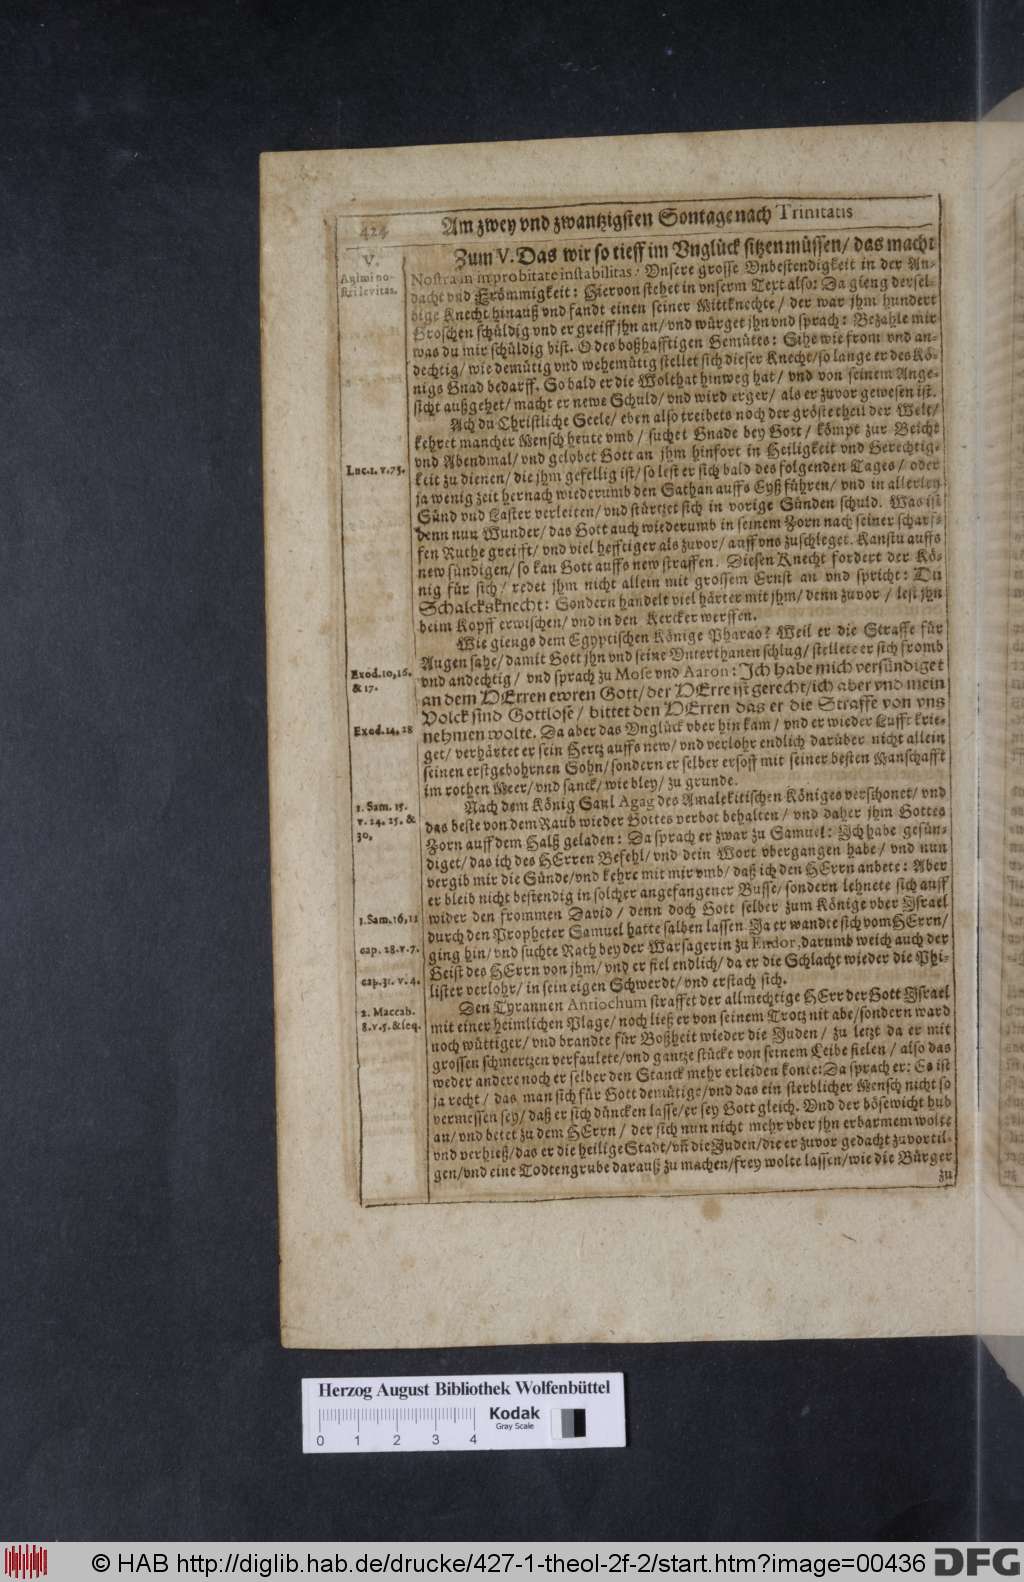 424 Am zwey vnd zwantzigsten Sontage nach Trinitatis
V.
Animi no-
stri levitas.
Zum V. Das wir so tieff im Vnglück sitzen müssen/ das macht
Nostra in improbitate instabilitas: Vnsere grosse Vnbestendigkeit in der An-
dacht vnd Frömmigkeit: Hiervon stehet in vnserm Text also: Da gieng dersel-
bige Knecht hinauß vnd fandt einen seiner Mittknechte/ der war jhm hundert
Groschen schüldig vnd er greiff jhn an/ vnd würget jhn vnd sprach: Bezahle mir
was du mir schüldig bist. O des boßhafftigen Gemütes: Sihe wie from vnd an-
dechtig/ wie demütig vnd wehemütig stellet sich dieser Knecht/ so lange er des Kö-
nigs Gnad bedarff. So bald er die Wolthat hinweg hat/ vnd von seinem Ange-
sicht außgehet/ macht er newe Schuld/ vnd wird erger/ als er zuvor gewesen ist.
Ach du Christliche Seele/ eben also treibets noch der gröste theil der Welt/
kehret mancher Mensch heute vmb/ suchet Gnade bey Gott/ kömpt zur Beicht
vnd Abendmal/ vnd gelobet Gott an jhm hinfort in Heiligkeit vnd Gerechtig-
Luc. 1. v. 75.
keit zu dienen/ die jhm gefellig ist/ so lest er sich bald des folgenden Tages/ oder
ja wenig zeit hernach wiederumb den Sathan auffs Eyß führen/ vnd in allerley
Sünd vnd Laster verleiten/ vnd stürtzet sich in vorige Sünden schuld. Was ist
denn nun Wunder/ das Gott auch wiederumb in seinem Zorn nach seiner scharf-
fen Ruthe greifft/ vnd viel hefftiger als zuvor/ auff vns zuschleget. Kanstu auffs
new sündigen/ so kan Gott auffs new straffen. Diesen Knecht fordert der Kö-
nig für sich/ redet jhm nicht allein mit grossem Ernst an vnd spricht: Du
Schalcksknecht: Sondern handelt viel härter mit jhm/ denn zuvor/ lest jhn
beim Kopff erwischen/ vnd in den Kercker werffen.
Wie giengs dem Egyptischen Könige Pharao? Weil er die Straffe für
Augen sahe/ damit Gott jhn vnd seine Vnterthanen schlug/ stellete er sich fromb
Exod. 10, 16.
& 17.
vnd andechtig/ vnd sprach zu Mose vnd Aaron: Ich habe mich versündiget
an dem HErren ewren Gott/ der HErre ist gerecht/ ich aber vnd mein
Volck sind Gottlose/ bittet den HErren das er die Straffe von vns
Exod. 14. 28
nehmen wolte. Da aber das Vnglück vber hin kam/ vnd er wieder Lufft krie-
get/ verhärtet er sein Hertz auffs new/ vnd verlohr endlich darüber nicht allein
seinen erstgebohrnen Sohn/ sondern er selber ersoff mit seiner besten Manschafft
im rothen Meer/ vnd sanck/ wie bley/ zu grunde.
1. Sam. 15.
v. 24. 25. &
30.
Nach dem König Saul Agag des Amalekitischen Königes verschonet/ vnd
das beste von dem Raub wieder Gottes verbot behalten/ vnd daher jhm Gottes
Zorn auff dem Halß geladen: Da sprach er zwar zu Samuel: Ich habe gesün-
diget/ das ich des HErren Befehl/ vnd dein Wort vbergangen habe/ vnd nun
vergib mir die Sünde/ vnd kehre mit mir vmb/ daß ich den HErrn anbete: Aber
er bleib nicht bestendig in solcher angefangener Busse/ sondern lehnete sich auff
1. Sam. 16, 12
wider den frommen David/ denn doch Gott selber zum Könige vber Israel
durch den Propheter Samuel hatte salben lassen. Ja er wandte sich vom HErrn/
cap. 28. v. 7.
ging hin/ vnd suchte Rath bey der Warsagerin zu Endor, darumb weich auch der
Geist des HErrn von jhm/ vnd er fiel endlich/ da er die Schlacht wieder die Phi-
cap. 31. v. 4.
lister verlohr/ in sein eigen Schwerdt/ vnd erstach sich.
2. Maccab.
8. v. 5. & seq.
Den Tyrannen Antiochum straffet der allmechtige HErr der Gott Israel
mit einer heimlichen Plage/ noch ließ er von seinem Trotz nit abe/ sondern ward
noch wüttiger/ vnd brandte für Boßheit wieder die Juden/ zu letzt da er mit
grossen schmertzen verfaulete/ vnd gantze stücke von seinem Leibe fielen/ also das
weder andere noch er selber den Stanck mehr erleiden konte: Da sprach er: Es ist
ja recht/ das man sich für Gott demütige/ vnd das ein sterblicher Mensch nicht so
vermessen sey/ daß er sich düncken lasse/ er sey Gott gleich. Vnd der bösewicht hub
an/ vnd betet zu dem HErrn/ der sich nun nicht mehr vber jhn erbarmem wolte
vnd verhieß/ das er die heilige Stadt/ vñ die Juden/ die er zuvor gedacht zuvortil-
gen/ vnd eine Todtengrube darauß zu machen/ frey wolte lassen/ wie die Bürger
zu
Herzog August Bibliothek Wolfenbüttel
Kodak
Gray Scale
0 1 2 3 4
© HAB http://diglib.hab.de/drucke/427-1-theol-2f-2/start.htm?image=00436 DFG